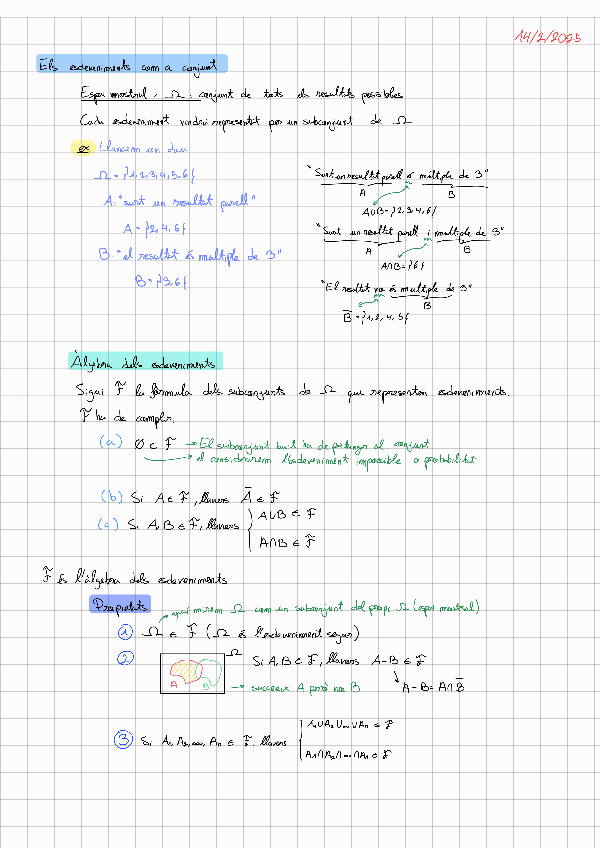 14/2/2023
Els esdeveniments com a conjunt
Espai mostral, Ω: conjunt de tots els resultats possibles
Cada esdeveniment vindrà representat per un subconjunt de Ω
ex Llancem un dau
Ω = {1, 2, 3, 4, 5, 6}
A: "surt un resultat parell"
A = {2, 4, 6}
B: "el resultat és múltiple de 3"
B = {3, 6}
"Surt un resultat parell o múltiple de 3"
A B
A∪B = {2, 3, 4, 6}
"Surt un resultat parell i múltiple de 3"
A B
A∩B = {6}
"El resultat no és múltiple de 3"
B
B̅ = {1, 2, 4, 5}
Àlgebra dels esdeveniments
Sigui F la fórmula dels subconjunts de Ω que representen esdeveniments.
F ha de complir:
(a) Ø ⊂ F → El subconjunt buit ha de pertànyer al conjunt
→ el considerarem l'esdeveniment impossible a probabilitat
(b) Si A ∈ F, llavors A̅ ∈ F
(c) Si A, B ∈ F, llavors { A∪B ∈ F
A∩B ∈ F
F és l'àlgebra dels esdeveniments
Propietats
aquí mirem Ω com un subconjunt del propi Ω (espai mostral)
1 Ω ∈ F (Ω és l'esdeveniment segur)
2 Ω Si A, B ∈ F, llavors A-B ∈ F
A B → succeeix A però no B
A-B = A∩B̅
3 Si A₁, A₂, ..., Aₙ ∈ F, llavors { A₁∪A₂∪...∪Aₙ ∈ F
A₁∩A₂∩...∩Aₙ ∈ F